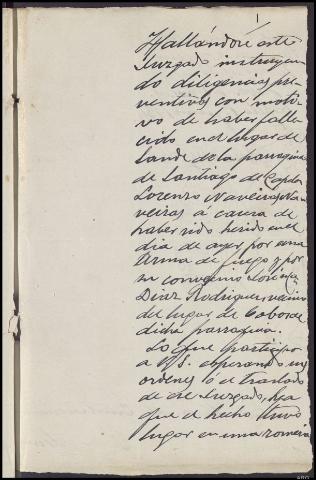 1
Hallándose este
Juzgado instruyen
do diligencias pre
ventivas con moti-
vo de haber falle
cido en el lugar de
Sande de la parroquia
de Santiago de Capela
Lorenzo Naveiras Na
veiras a causa de
haber sido herido en el
dia de ayer por una
arma de fuego y por
su convecino José
Diaz Rodriguez, vecino
del lugar de
dicha parroquia.
Lo que participo
a V.S. esperando sus
ordenes ó el traslado
de ese Juzgado, hya
que el hecho tuvo
lugar en una romeria